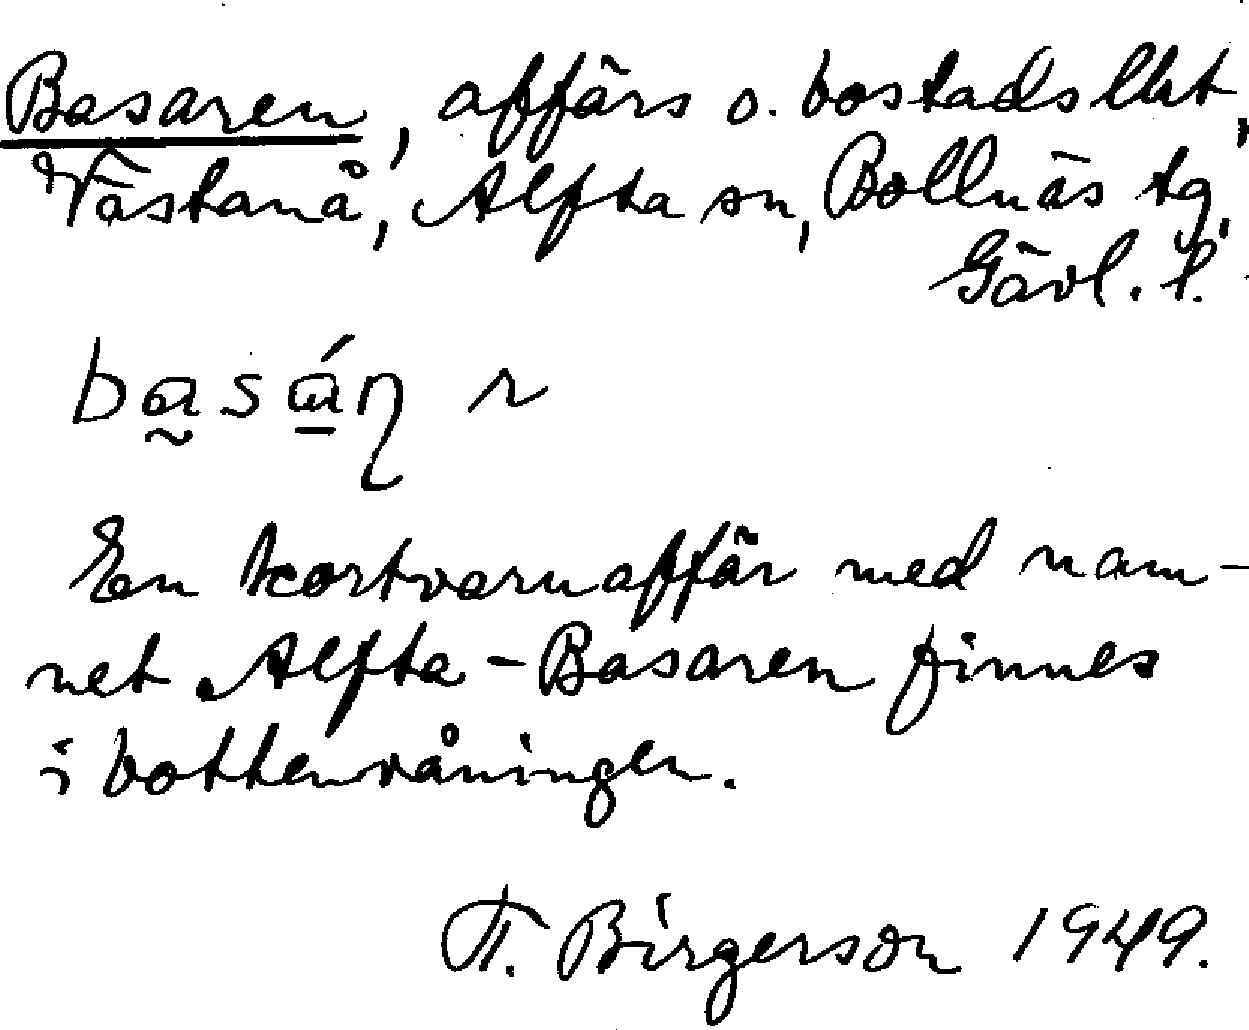 Basaren, affärs o. bostadslht,
Västanå, Alfta sn, Bollnäs tg,
Gävl. l.
En kortvaruaffär med nam-
net Alfta-Basaren finnes
i bottenvåningen.
T. Birgerson 1949.